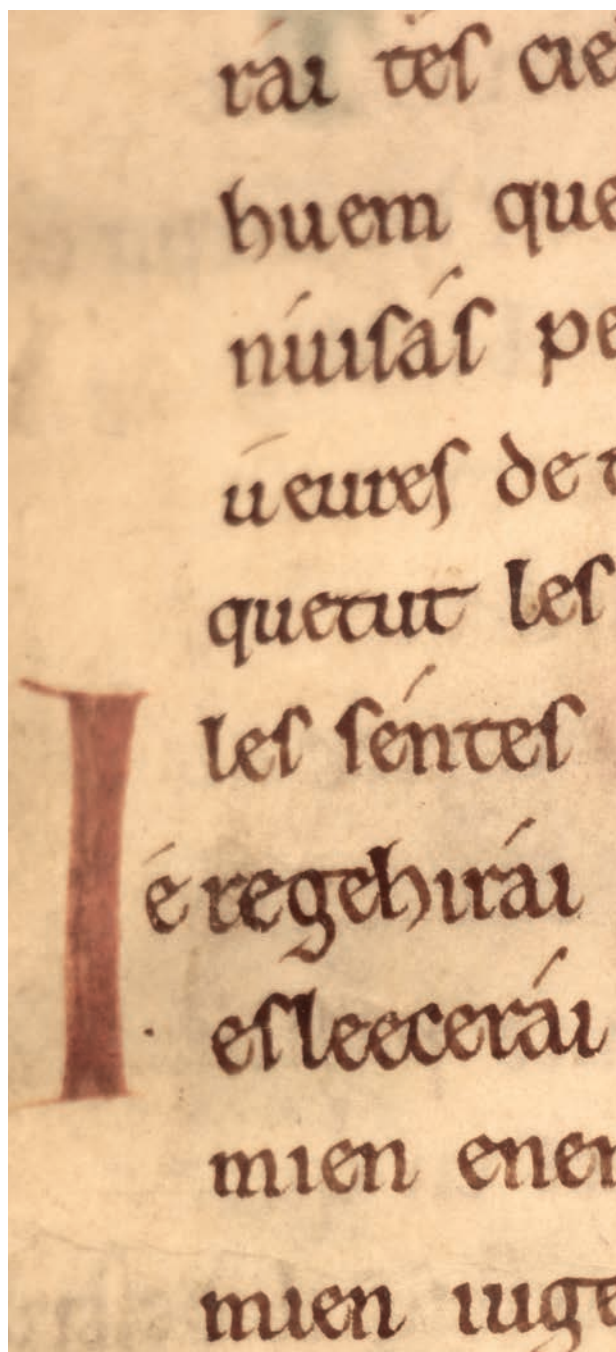 rái tés cie
huem que
núisás pe
úeures de t
quetut les
les séntes
Ié regehirái
esleecerái
mien enem
mien iuge